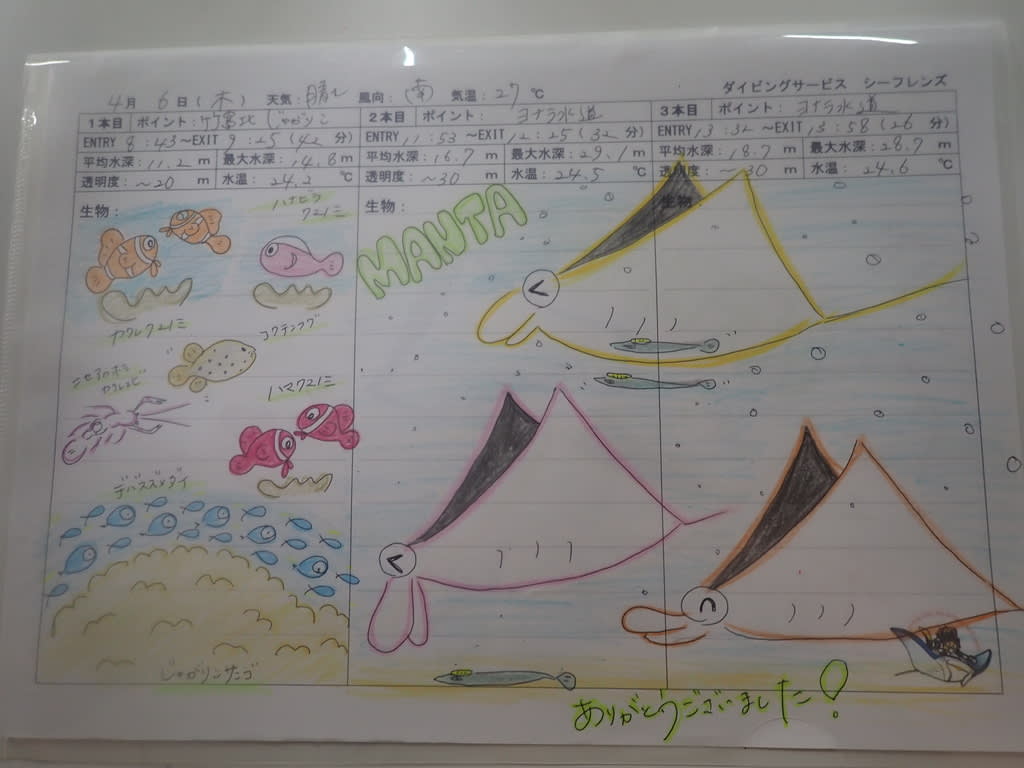 ダイビングサービス シーフレンズ
4月 6日(木) 天気:晴れ 風向:南 気温:27℃
1本目 ポイント:竹富北 じゃがりこ
ENTRY 8:43〜EXIT 9:25(42分)
平均水深:11.2m 最大水深:14.8m
透明度:〜20m 水温:24.2℃
生物:
ハナビラ
クマノミ
カクレクマノミ
コクテンフグ
ハマクマノミ
デバスズメダイ
じゃがりこサンゴ
2本目 ポイント:ヨナラ水道
ENTRY 11:53〜EXIT 12:25(32分)
平均水深:16.7m 最大水深:29.1m
透明度:〜30m 水温:24.5℃
生物:
MANTA
3本目 ポイント:ヨナラ水道
ENTRY 13:32〜EXIT 13:58(26分)
平均水深:18.7m 最大水深:28.7m
透明度:〜30m 水温:24.6℃
生物:
ありがとうございました!